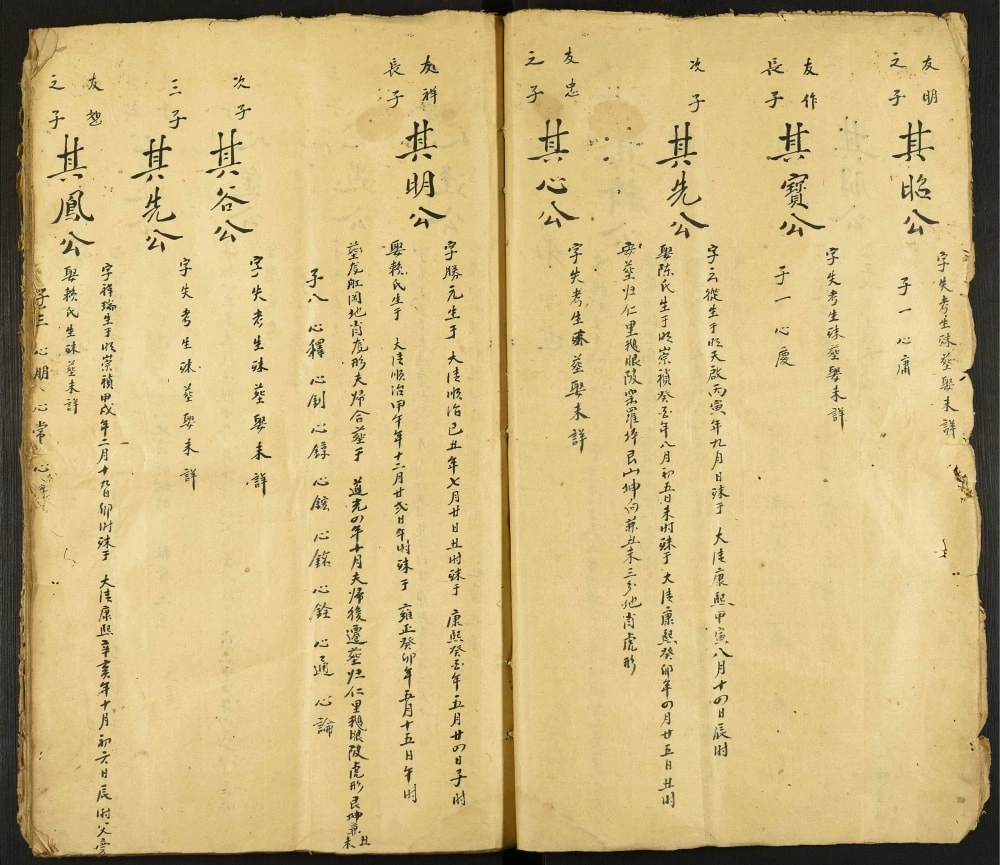 友明
之子
其昭公
字失考生殁葬娶未詳
子一 心庸
友作
長子
其寶公
字失考生殁葬娶未詳
子一 心慶
次子
其先公
字云從生于明天啟丙寅年九月日殁于 大清康熙甲寅八月十四日辰时
娶陈氏生于明崇禎癸酉年八月初五日未时殁于 大清康熙癸卯年四月廿五日丑时
安葬归仁里鵝眼陂 羅 艮山坤向兼丑未三分地肖虎形
友忠
之子
其心公
字失考生殁葬娶未詳
友祥
長子
其明公
字勝元生于 大清順治己丑年七月廿日丑时殁于 康熙癸酉年五月廿四日子时
娶赖氏生于 大清順治甲午年十二月廿弍日午时殁于 雍正癸卯年五月十五日午时
葬 岡地肖虎形夫婦合葬于 道光四年十月夫婦後遷葬归仁里鵝眼陂虎形艮坤兼丑未
子八 心釋 心釗 心錞 心鋐 心銘 心銓 心通 心論
次子
其谷公
字失考生殁葬娶未詳
三子
其先公
字失考生殁葬娶未詳
友恕
之子
其鳳公
字祥瑞生于明崇禎甲戌年二月十九日卯时殁于 大清康熙辛亥年十月初六日辰时
娶赖氏生殁葬未詳
子三 心朋 心常 心